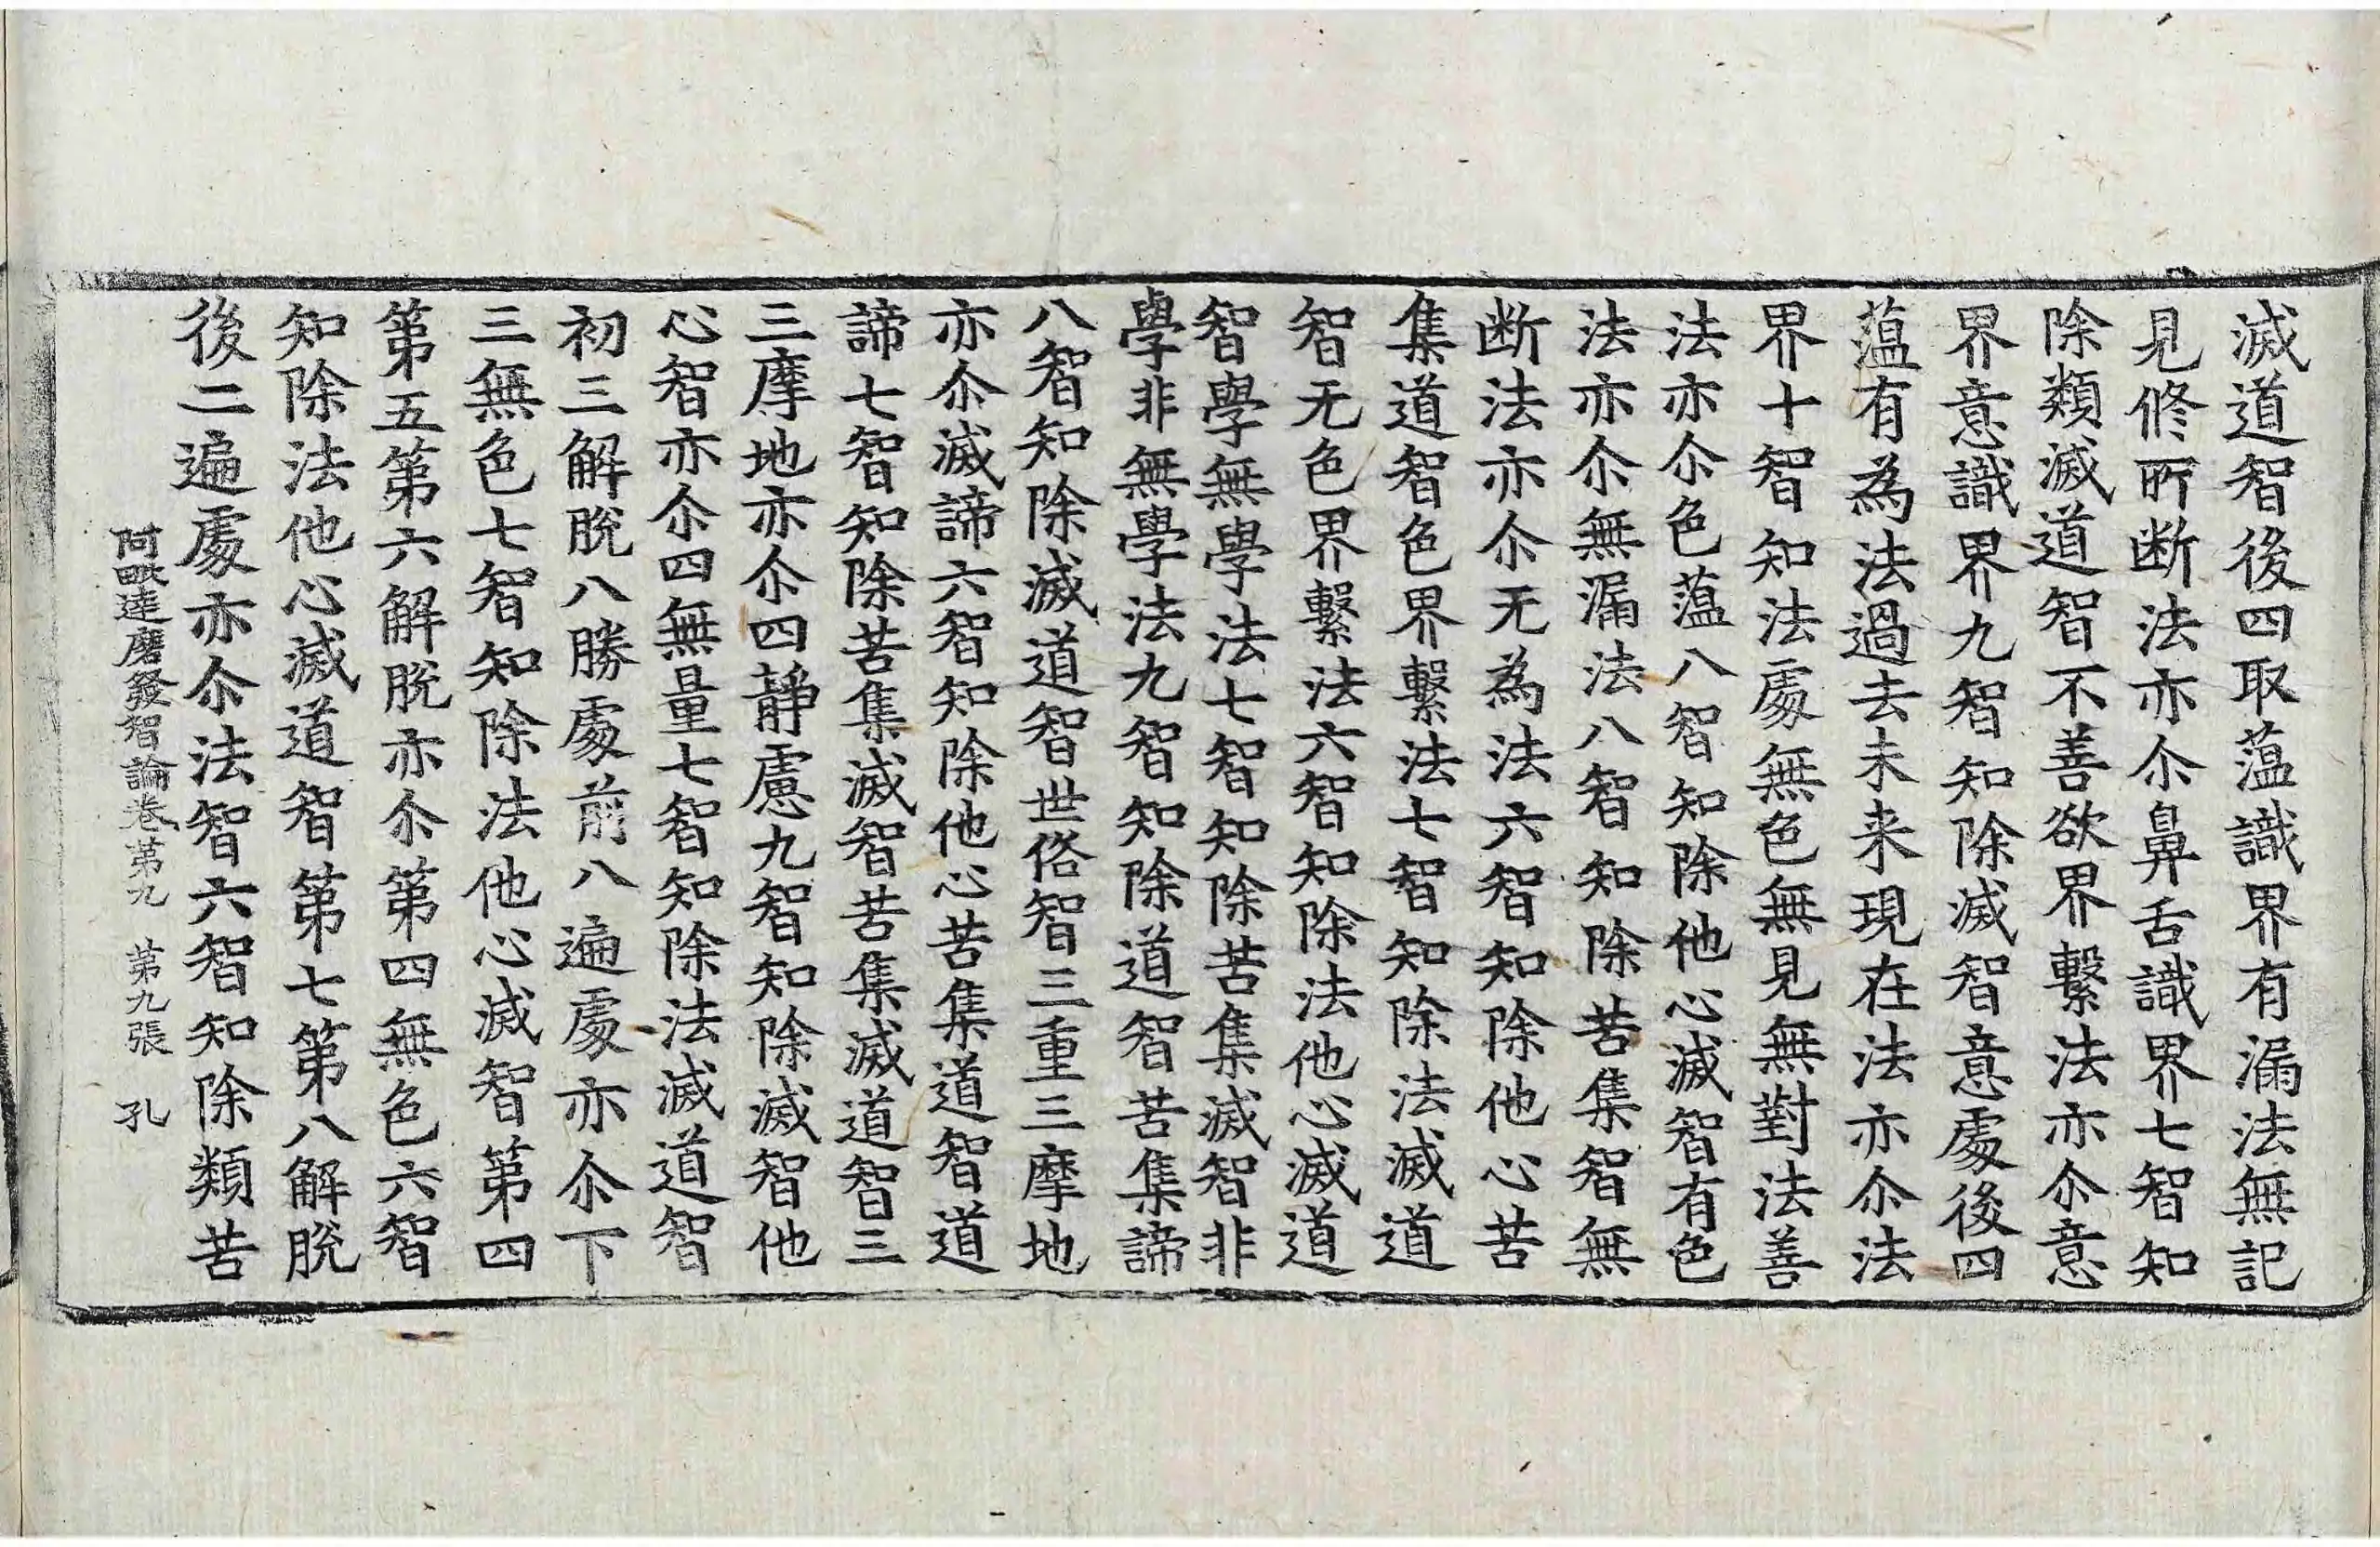 滅道智後四取蘊識界有漏法無記
見修所断法亦尒鼻舌識界七智知
除類滅道智不善欲界繫法亦尒意
界意識界九智知除滅智意處後四
蕰有為法過去未来現在法亦尒法
界十智知法處無色無見無對法善
法亦尒色蕰八智知除他心滅智有色
法亦尒無漏法八智知除苦集智無
断法亦尒无為法六智知除他心苦
集道智色界繫法七智知除法滅道
智无色界繫法六智知除法他心滅道
智學無學法七智知除苦集滅智非
學非無學法九智知除道智苦集諦
八智知除滅道智世俗智三重三摩地
亦尒滅諦六智知除他心苦集道智道
諦七智知除苦集滅智苦集滅道智三
三摩地亦尒四靜慮九智知除滅智他
心智亦尒四無量七智知除法滅道智
初三解脫八勝處前八遍處亦尒下
三無色七智知除法他心滅智第四
第五第六解脫亦尒第四無色六智
知除法他心滅道智第七第八解脫
後二遍處亦尒法智六智知除類苦
阿毗達磨發智論卷第九　第九張　孔